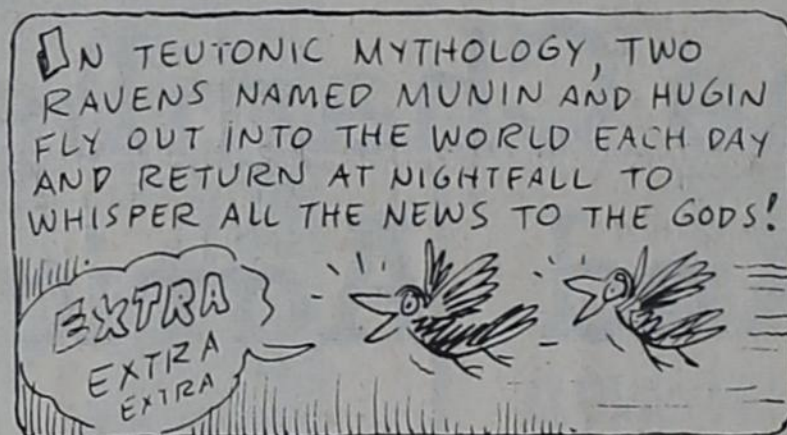 IN TEUTONIC MYTHOLOGY, TWO
RAVENS NAMED MUNIN AND HUGIN
FLY OUT INTO THE WORLD EACH DAY
AND RETURN AT NIGHTFALL TO
WHISPER ALL THE NEWS TO THE GODS!
EXTRA
EXTRA
EXTRA